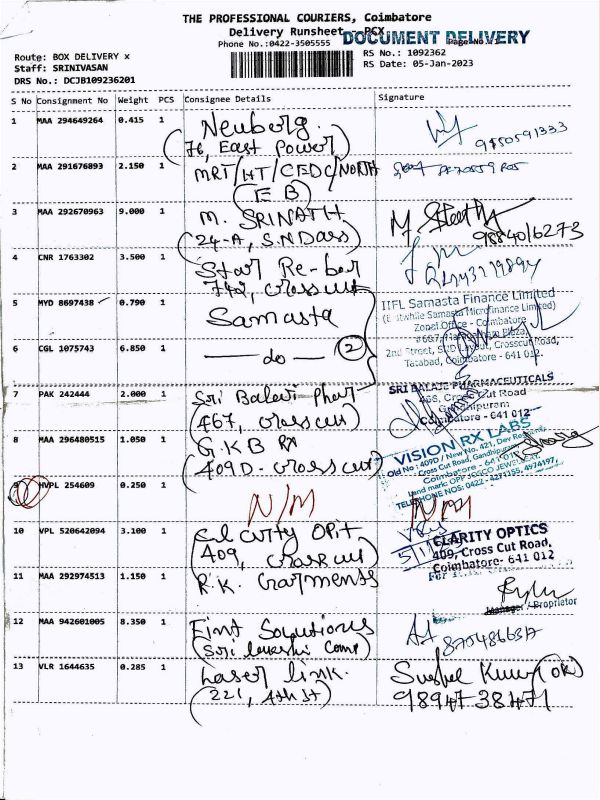 THE PROFESSIONAL COURIERS, Coimbatore
Delivery Runsheet - PCX
Phone No.:0422-3505555
DOCUMENT DELIVERY
Route: BOX DELIVERY x
RS No.: 1092362
Staff: SRINIVASAN
RS Date: 05-Jan-2023
DRS No.: DCJB109236201
S No Consignment No Weight PCS Consignee Details Signature
1 MAA 294649264 0.415 1 Neuberg.
(76, East Power)
9550591333
2 MAA 291676893 2.150 1 MRT/HT/CEDC/NORTH
(E B)
3 MAA 292670963 9.000 1 M. SRINATH
(24-A, S.N Dass)
9884016273
4 CNR 1763302 3.500 1 Star Re-bar
742, Crosscut
5 MYD 8697438 0.790 1 Samasta
IIFL Samasta Finance Limited
(Erstwhile Samasta Microfinance Limited)
Zonel Office - Coimbatore
2nd Street, Crosscut Road,
Tatabad, Coimbatore - 641 012.
6 CGL 1075743 6.850 1 — do — (2)
7 PAK 242444 2.000 1 Sri Balaji Phar
(467, Crosscut)
SRI BALAJE PHARMACEUTICALS
Cut Road
Gandhipuram
Coimbatore - 641 012
8 MAA 296480515 1.050 1 G.K B RX
(409D - Crosscut)
VISION RX LABS
Old No : 409D / New No. 421, Dev
Cross Cut Road, Gandhipuram
Coimbatore - 641
Land mark: OPP JOSCO JEWELLERY,
TELEPHONE NOS: 0422 - 4271155, 4974197,
9 HVPL 254609 0.250 1 N/M N/M
10 VPL 520642094 3.100 1 Clarity Opt
(409, Crosscut)
CLARITY OPTICS
409, Cross Cut Road,
Coimbatore- 641 012
11 MAA 292974513 1.150 1 R.K. Garments
Manager / Proprietor
12 MAA 942601005 8.350 1 Eint Solutions
(Sri Lakshmi Comp)
13 VLR 1644635 0.285 1 Laser link.
(221, 4th St)
(OK)
9894738471